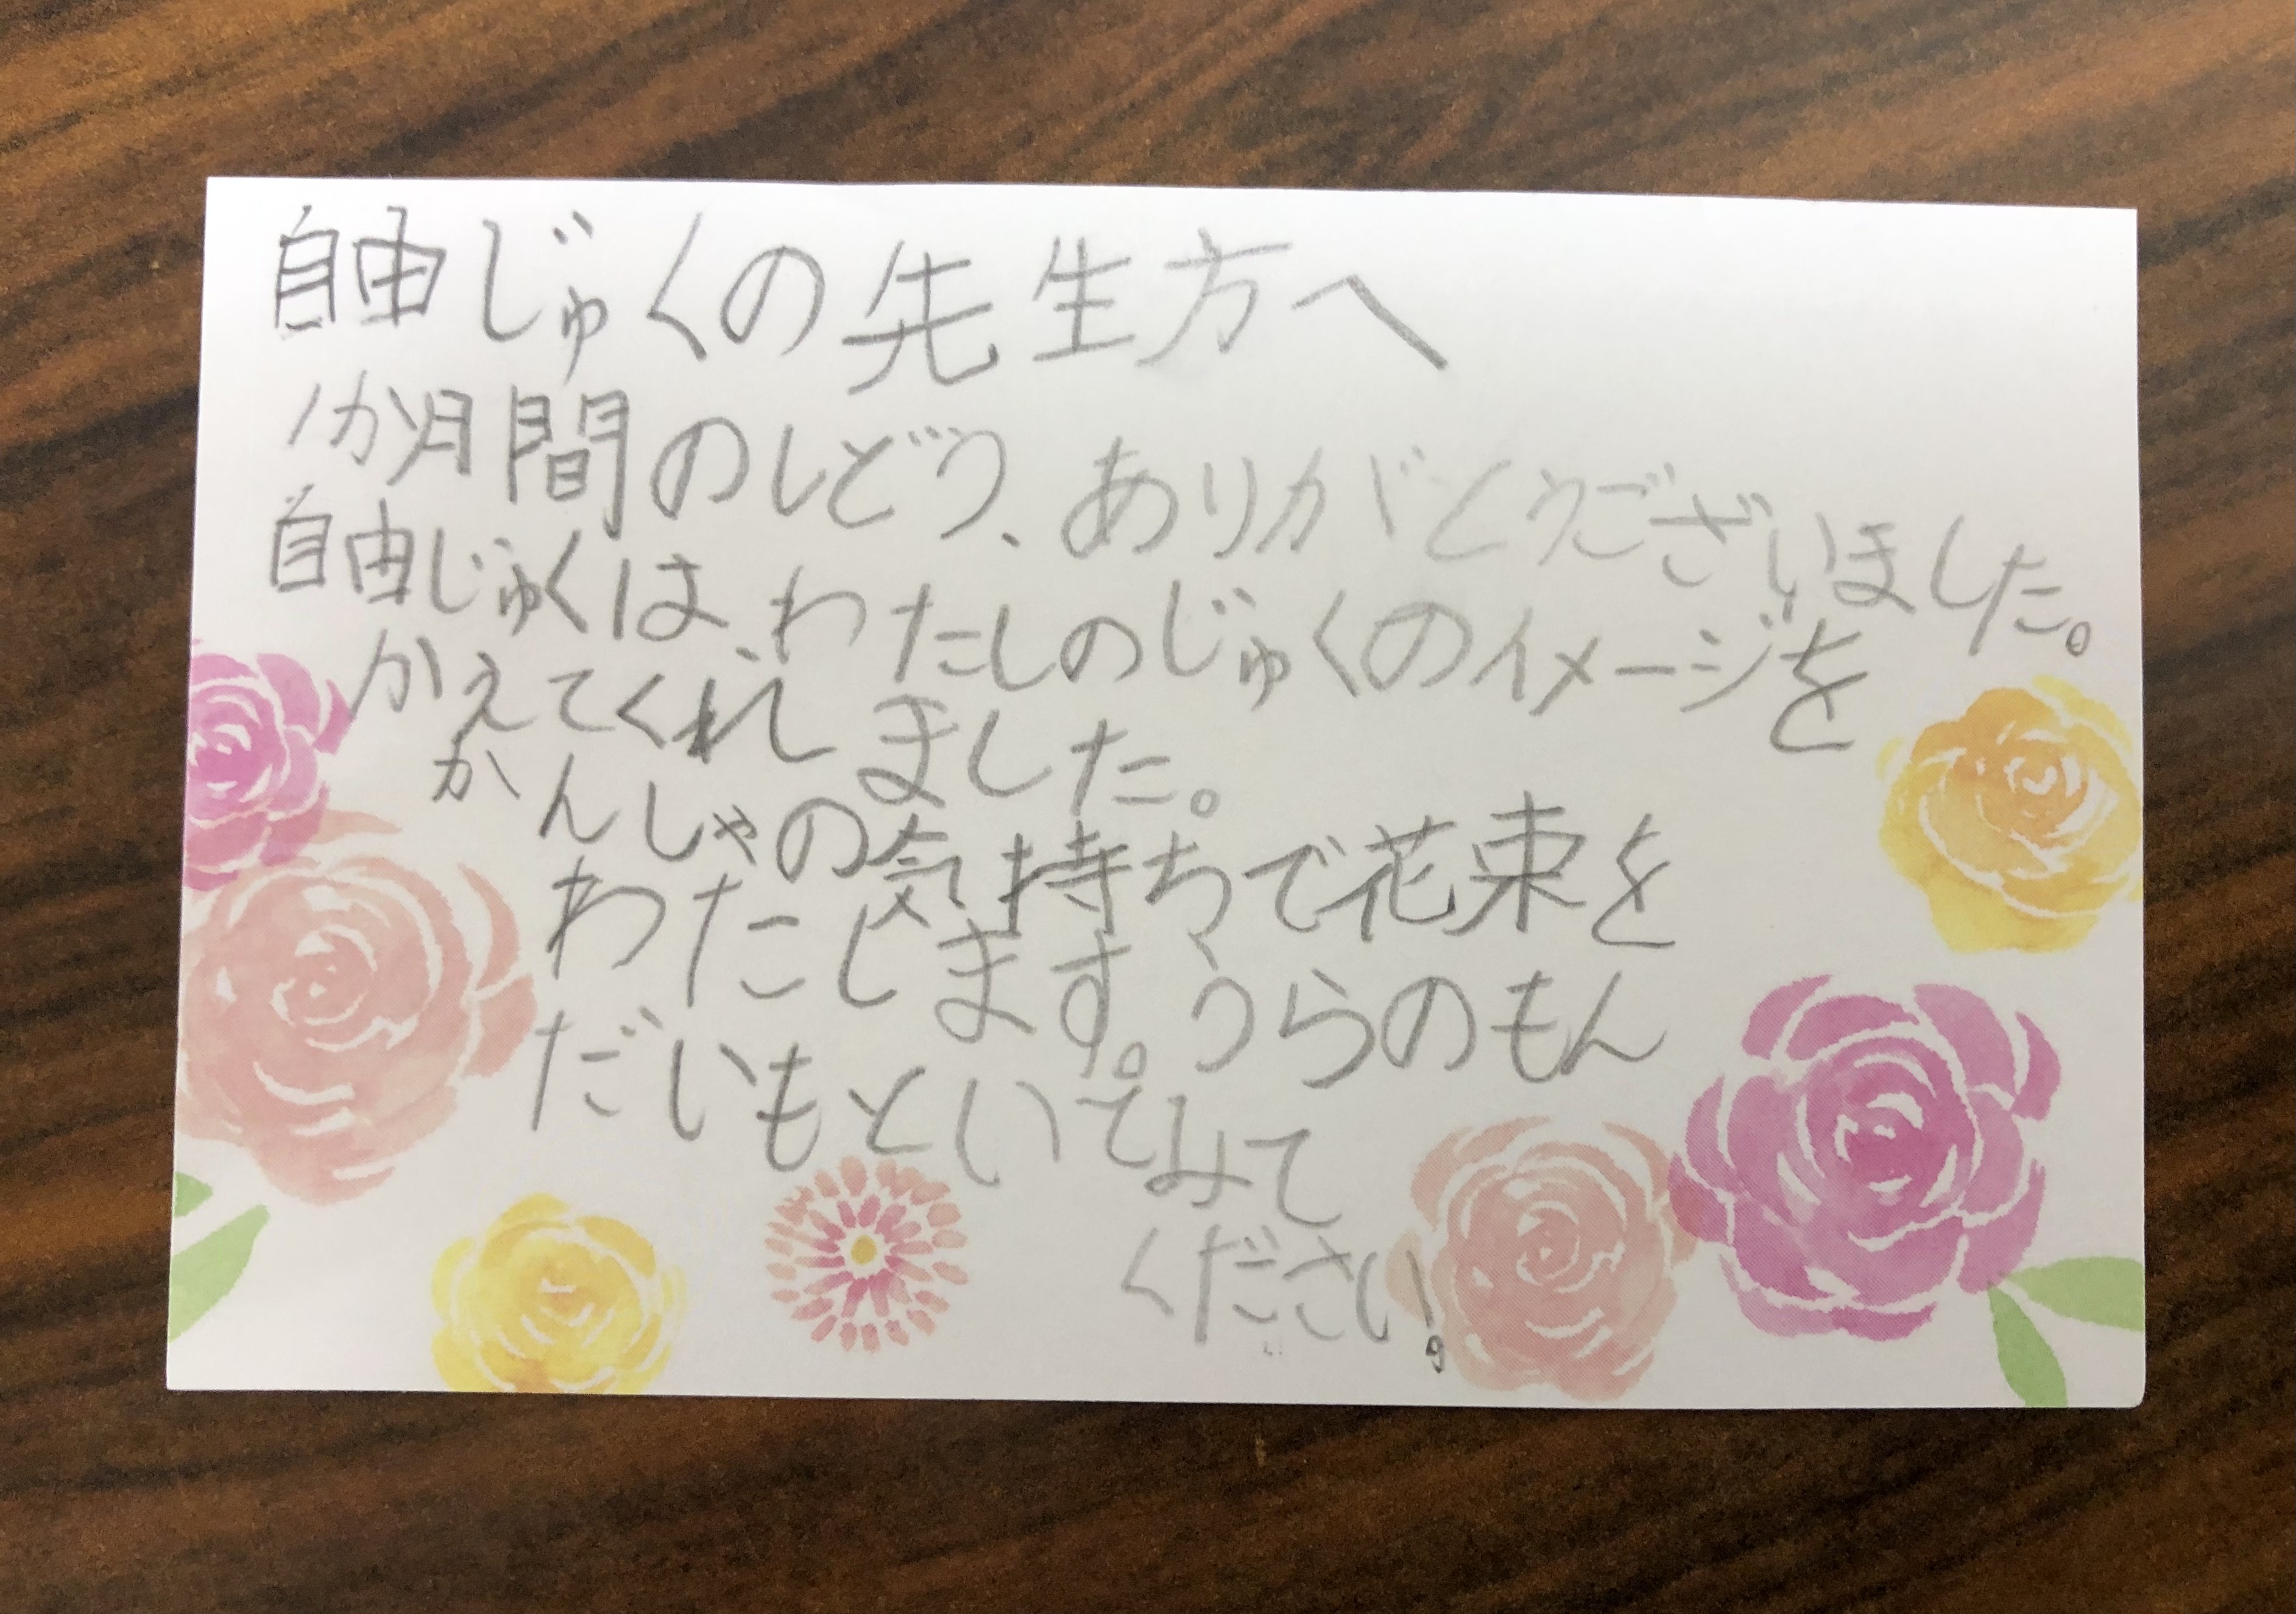 自由じゅくの先生方へ
1か月間のしどう、ありがとうございました。
自由じゅくは、わたしのじゅくのイメージを
かえてくれました。
かんしゃの気持ちで花束を
わたします。うらのもん
だいもといてみて
ください!